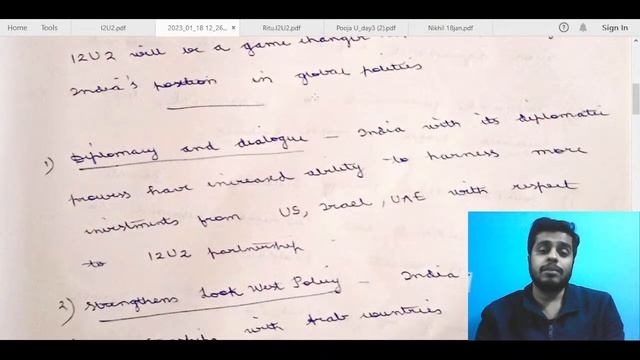 Home Tools I2U2.pdf 2023_01_18 12_26... × Ritu.I2U2.pdf Pooja U_day3 (2).pdf Nikhil 18jan.pdf Sign In
I2U2 will be a game changer
India's position in global politics
1) Diplomacy and dialogue – India with its diplomatic
prowess have increased ability to harness more
invrstments from US, Israel, UAE with respect
to I2U2 partnership
2) Strengthens Look West Policy – India
with Arab countries